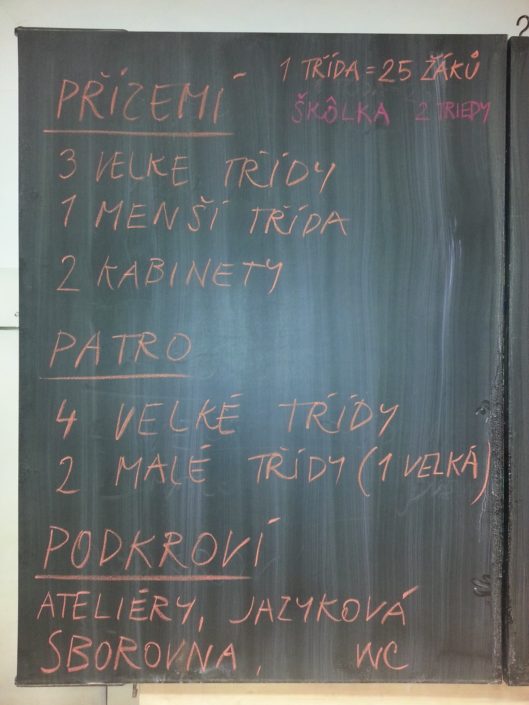 1 TŘÍDA = 25 ŽÁKŮ
ŠKÔLKA 2 TRIEDY
PŘÍZEMÍ
3 VELKE TŘÍDY
1 MENŠÍ TŘÍDA
2 KABINETY
PATRO
4 VELKÉ TŘÍDY
2 MALÉ TŘÍDY (1 VELKÁ)
PODKROVÍ
ATELIÉRY, JAZYKOVÁ
SBOROVNA, WC